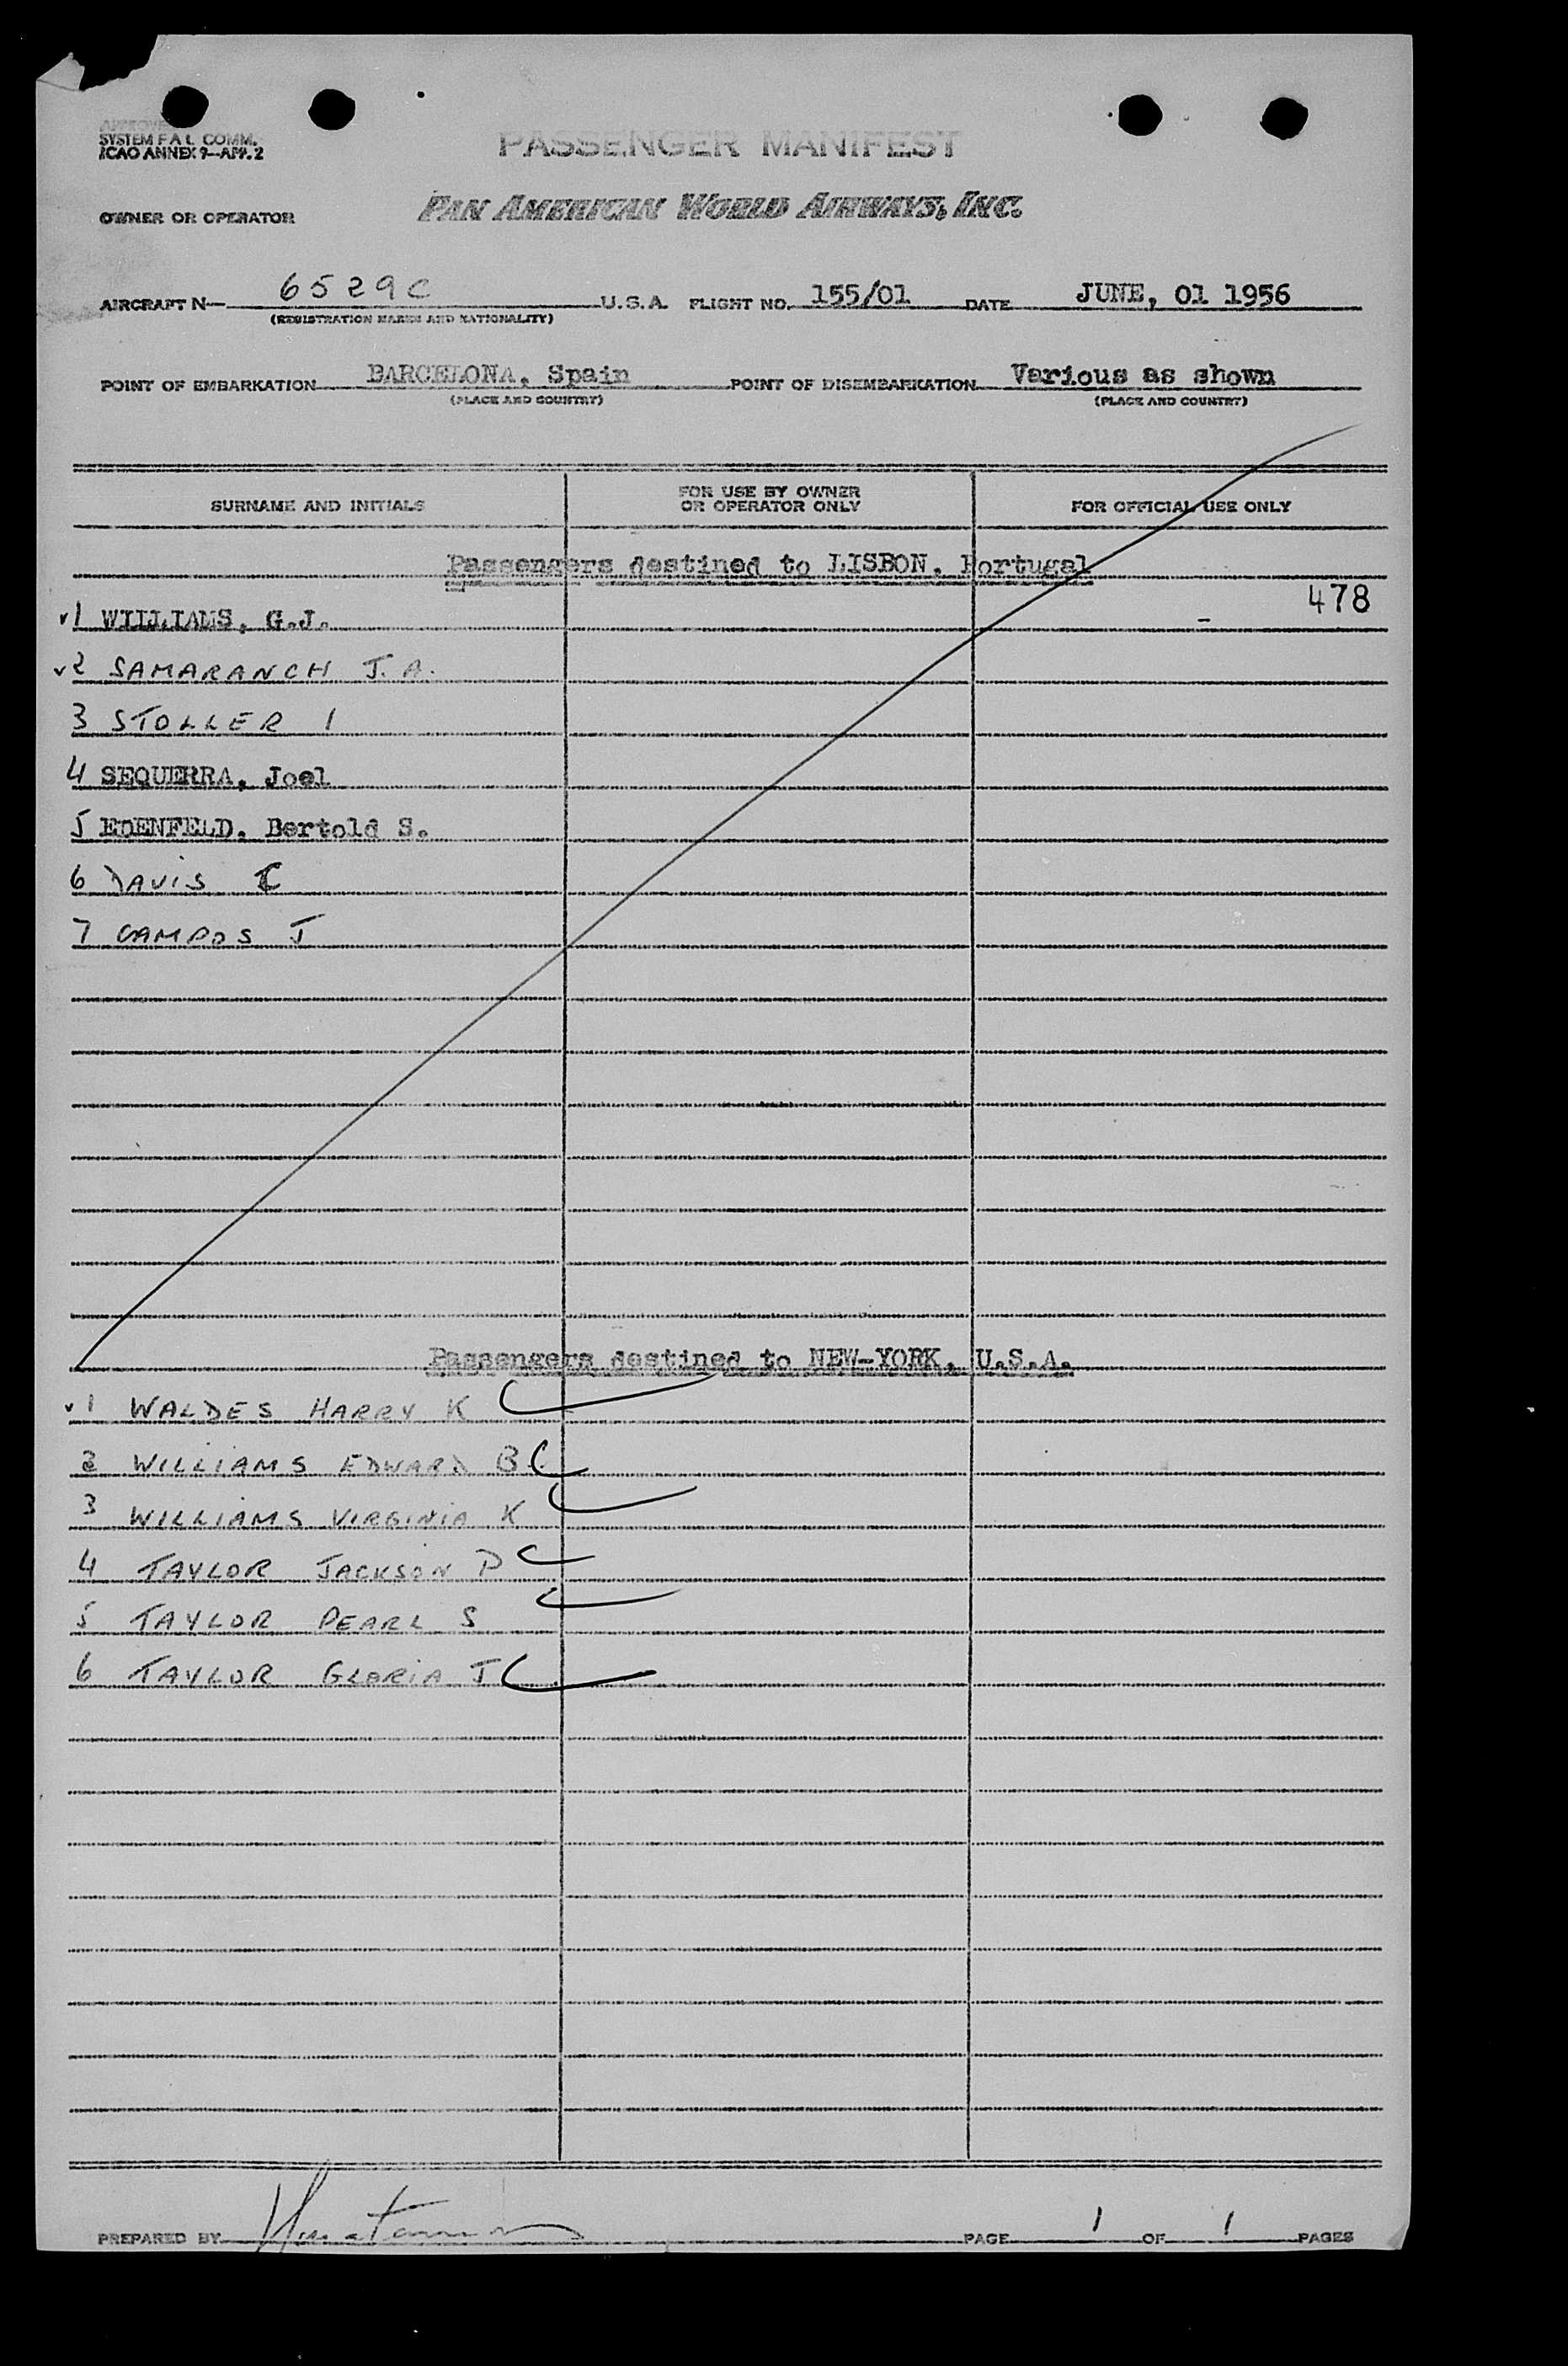 SYSTEM F A L COMM.
ICAO ANNEX 9—APP. 2
PASSENGER MANIFEST
OWNER OR OPERATOR PAN AMERICAN WORLD AIRWAYS, INC.
AIRCRAFT N— 6529C U.S.A. FLIGHT NO. 155/01 DATE JUNE, 01 1956
(REGISTRATION MARKS AND NATIONALITY)
POINT OF EMBARKATION BARCELONA, Spain POINT OF DISEMBARKATION Various as shown
(PLACE AND COUNTRY) (PLACE AND COUNTRY)
SURNAME AND INITIALS FOR USE BY OWNER OR OPERATOR ONLY FOR OFFICIAL USE ONLY
Passengers destined to LISBON, Portugal
478
1 WILLIAMS, G.J. -
2 SAMARANCH J.A.
3 STOLLER I
4 SEQUERRA, Joel
5 EDENFELD, Bertold S.
6 DAVIS
7 CAMPOS J
Passengers destined to NEW-YORK, U.S.A.
1 WALDES HARRY K
2 WILLIAMS EDWARD B.
3 WILLIAMS VIRGINIA K
4 TAYLOR JACKSON P
5 TAYLOR PEARL S
6 TAYLOR GLORIA J
PREPARED BY PAGE 1 OF 1 PAGES